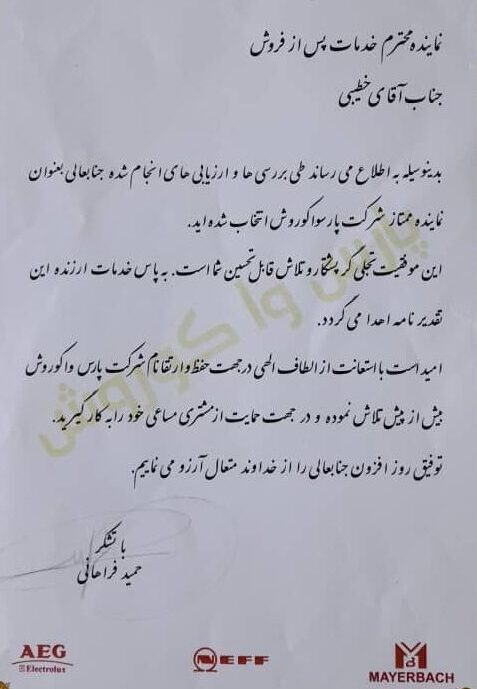 نماینده محترم خدمات پس از فروش
جناب آقای خطیبی
بدینوسیله به اطلاع می رساند طی بررسی ها و ارزیابی های انجام شده جنابعالی بعنوان
نماینده ممتاز شرکت پارسواکوروش انتخاب شده اید.
این موفقیت تجلی گر پشتکار و تلاش قابل تحسین شما است. به پاس خدمات ارزنده این
تقدیر نامه اهدا می گردد.
امید است با استعانت از الطاف الهی در جهت حفظ و ارتقا نام شرکت پارس واکوروش
بیش از پیش تلاش نموده و در جهت حمایت از مشتری مساعی خود را به کار گیرید.
توفیق روز افزون جنابعالی را از خداوند متعال آرزو می نماییم.
با تشکر
حمید فراهانی
پارس وا کوروش
AEG
Electrolux
NEFF
MAYERBACH